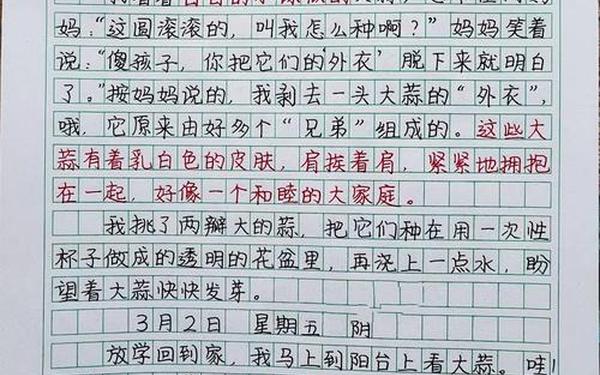 白白的
妈:“这圆滚滚的,叫我怎么种啊?”妈妈笑着
说:“傻孩子,你把它们的外衣’脱下来就明白
了。”按妈妈说的,我剥去一头大蒜的“外衣”,
哦,它原来由好多个“兄弟”组成的。这些大
蒜有着乳白色的皮肤,肩挨着肩,紧紧地拥抱
在一起,好像一个和睦的大家庭。
我挑了两瓣大的蒜,把它们种在用一次性
杯子做成的透明的花盆里,再浇上一点水,盼
望着大蒜快快发芽。
3月2日 星期五 阴
放学回到家,我马上到阳台上看大蒜。哇!